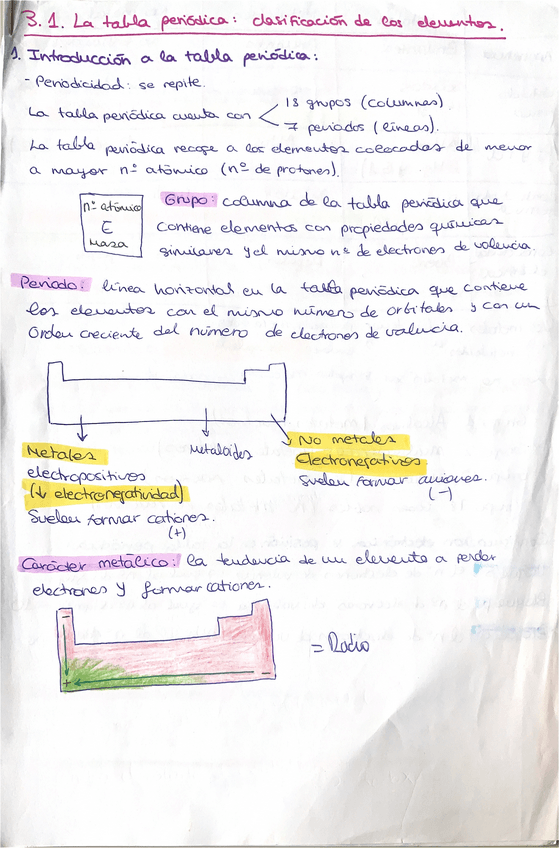 3.1. La tabla periódica: clasificación de los elementos.
1. Introducción a la tabla periódica:
- Periodicidad: se repite.
La tabla periódica cuenta con < 18 grupos (columnas)
7 periodos (líneas).
La tabla periódica recoge a los elementos colocados de menor
a mayor nº atómico (nº de protones).
nº atómico
E
Masa
Grupo: columna de la tabla periódica que
contiene elementos con propiedades químicas
similares y el mismo nº de electrones de valencia.
Periodo: línea horizontal en la tabla periódica que contiene
los elementos con el mismo número de orbitales y con un
orden creciente del número de electrones de valencia.
Metales
electropositivos
(↓ electronegatividad)
Suelen formar cationes.
(+)
Metaloides
No metales
Electronegativos
Suelen formar aniones.
(-)
Carácter metálico: la tendencia de un elemento a perder
electrones y formar cationes.
-
+ -
= Radio